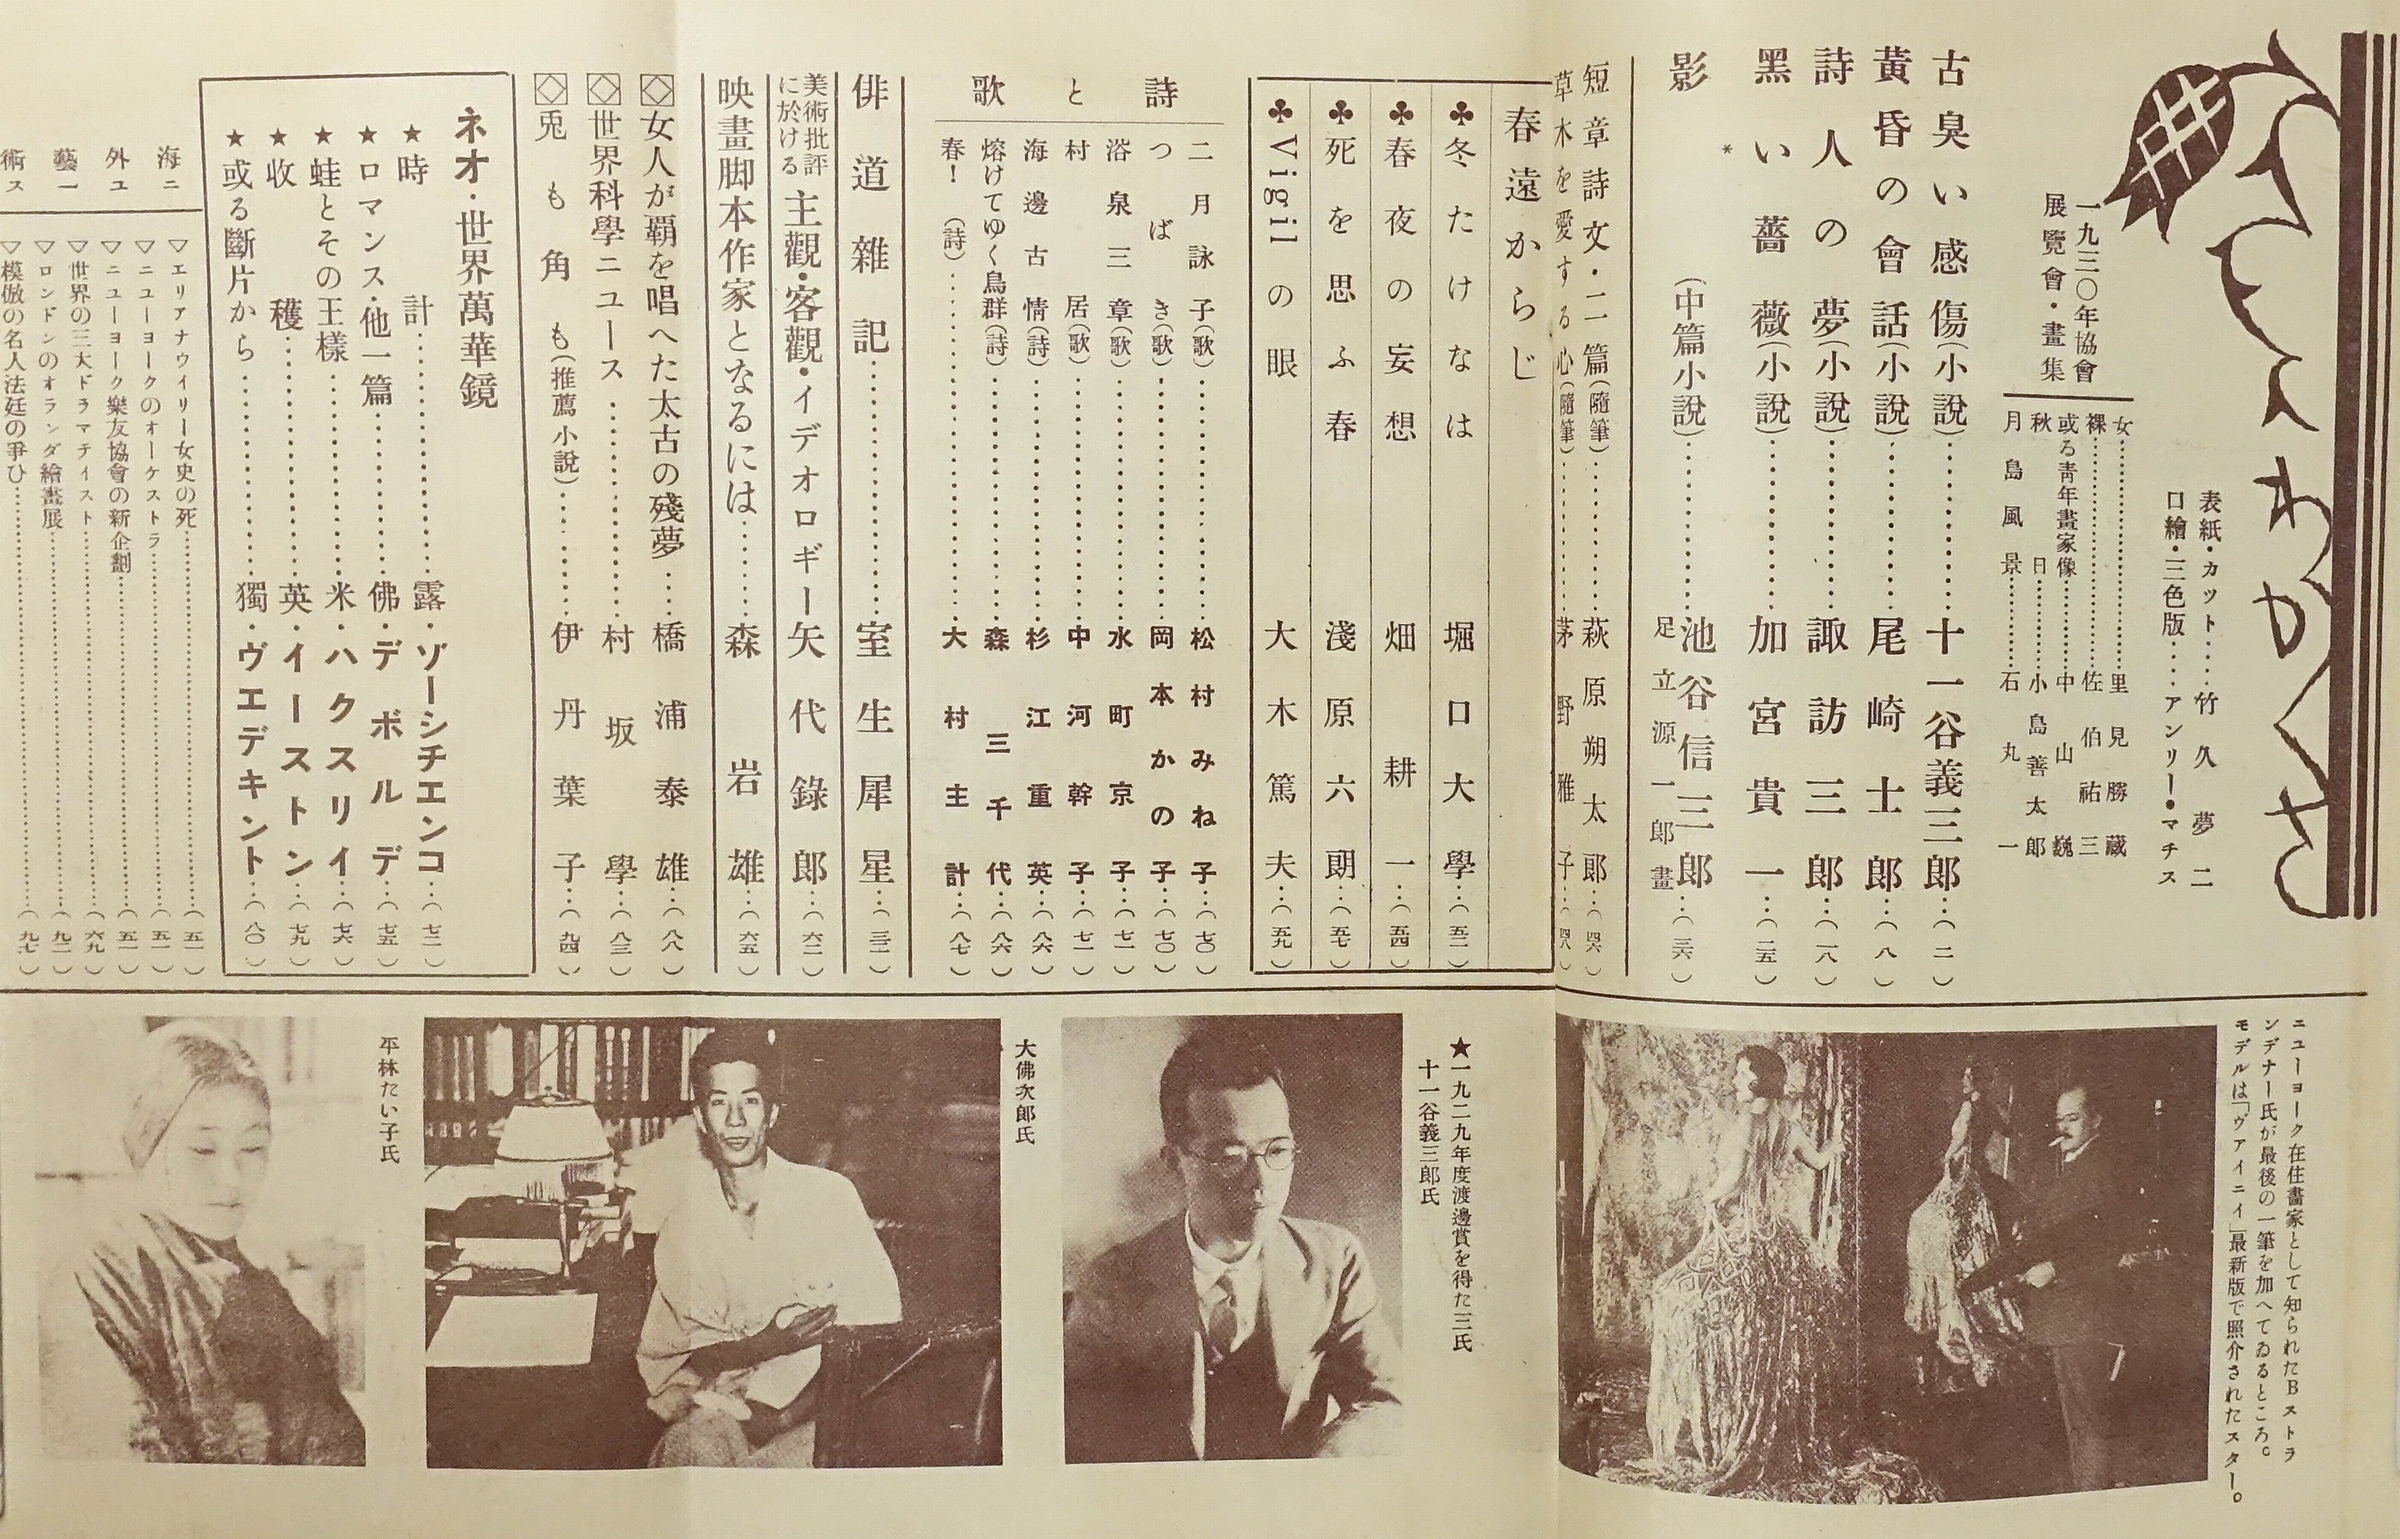 わかくさ
表紙・カット……竹久夢二
口繪・三色版……アンリー・マチス
一九三〇年協會
展覽會・畫集
女……里見勝藏
裸……佐伯祐三
或る靑年畫家像……中山巍
秋日……小島善太郎
月島風景……石丸一
古臭い感傷(小說)……十一谷義三郎…(二)
黃昏の會話(小說)……尾崎士郎…(八)
詩人の夢(小說)……諏訪三郎…(一八)
黑い薔薇(小說)……加宮貴一…(二五)
影(中篇小說)……池谷信三郎…(三六)
＊
足立源一郎畫
短章詩文・二篇(隨筆)……萩原朔太郎…(四六)
草木を愛する心(隨筆)……茅野雅子…(四八)
春遠からじ
♣冬たけなは 堀口大學…(五二)
♣春夜の妄想 畑耕一…(五四)
♣死を思ふ春 淺原六朗…(五七)
♣Vigilの眼 大木篤夫…(五九)
詩と歌
二月詠子(歌)……松村みね子…(七〇)
つばき(歌)……岡本かの子…(七〇)
浴泉三章(歌)……水町京子…(七一)
村居(歌)……中河幹子…(七一)
海邊古情(詩)……杉江重英…(八六)
熔けてゆく鳥群(詩)……森三千代…(八六)
春！(詩)……大村主計…(八七)
俳道雜記……室生犀星…(三二)
美術批評に於ける 主觀・客觀・イデオロギー 矢代錄郎…(六二)
映畫脚本作家となるには……森岩雄…(六五)
女人が覇を唱へた太古の殘夢……橋浦泰雄…(八八)
世界科學ニユース……村坂學…(八三)
兎も角も(推薦小說)……伊丹葉子…(九四)
ネオ・世界萬華鏡
★時計……露・ゾーシチエンコ…(七二)
★ロマンス・他一篇……佛・デボルデ…(七五)
★蛙とその王樣……米・ハクスリイ…(七六)
★收穫……英・イーストン…(七九)
★或る斷片から……獨・ヴエデキント…(八〇)
海外藝術ニユース
▽エリアナウイリー女史の死……(五一)
▽ニユーヨークのオーケストラ……(五一)
▽ニユーヨーク樂友協會の新企劃……(五一)
▽世界の三大ドラマテイスト……(六九)
▽ロンドンのオランダ繪畫展……(九二)
▽模倣の名人法廷の爭ひ……(九七)
ニユーヨーク在住畫家として知られたBストラ
ンデナー氏が最後の一筆を加へてゐるところ。
モデルは「ヴアイニイ」最新版で照介されたスター。
★一九二九年度渡邊賞を得た三氏
十一谷義三郎氏
大佛次郎氏
平林たい子氏